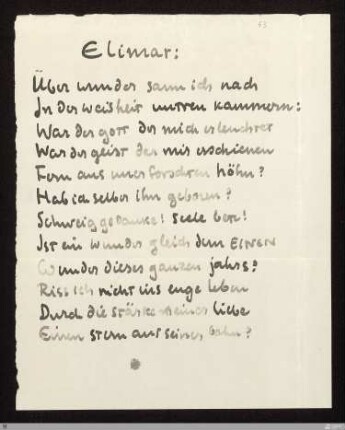 53
Elimar:
Über wunder sann ich nach
In der weisheit untren kammern:
War der gott der mich erleuchtet
War der geist der mir erschienen
Fern aus unerforschten höhn?
Hab ich selber ihn geboren?
Schweig gedanke! Seele bete!
Ist ein wunder gleich dem EINEN
Wunder dieses ganzen jahrs:
Riss ich nicht ins enge leben
Durch die stärke meiner liebe
Einen stern aus seiner bahn?